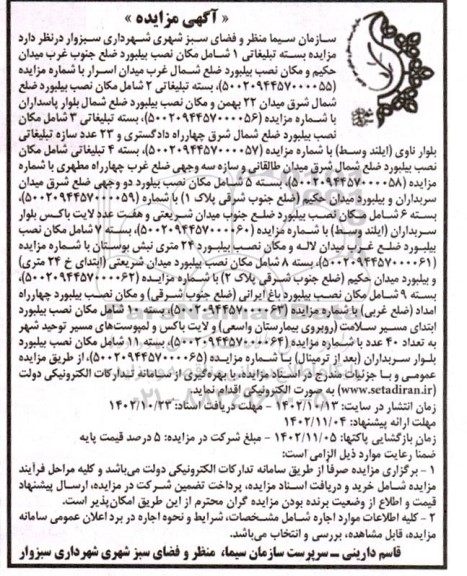 « آگهی مزایده »
سازمان سیما منظر و فضای سبز شهری شهرداری سبزوار درنظر دارد
مزایده بسته تبلیغاتی ۱ شامل مکان نصب بیلبورد ضلع جنوب غرب میدان
حکیم و مکان نصب بیلبورد ضلع شمال غرب میدان اسرار با شماره مزایده
(۵۰۰۲۰۹۴۴۵۷۰۰۰۰۵۵)، بسته تبلیغاتی ۲ شامل مکان نصب بیلبورد ضلع
شمال شرق میدان ۲۲ بهمن و مکان نصب بیلبورد ضلع شمال بلوار پاسداران
با شماره مزایده (۵۰۰۲۰۹۴۴۵۷۰۰۰۰۵۶)، بسته تبلیغاتی ۳ شامل مکان
نصب بیلبورد ضلع شمال شرق چهارراه دادگستری و ۲۳ عدد سازه تبلیغاتی
بلوار ناوی (ایلند وسط) با شماره مزایده (۵۰۰۲۰۹۴۴۵۷۰۰۰۰۵۷)، بسته ۴ تبلیغاتی شامل مکان
نصب بیلبورد ضلع شمال شرق میدان طالقانی و سازه سه وجهی ضلع غرب چهارراه مطهری با شماره
مزایده (۵۰۰۲۰۹۴۴۵۷۰۰۰۰۵۸)، بسته ۵ شامل مکان نصب بیلبورد دو وجهی ضلع شرق میدان
سربداران و بیلبورد میدان حکیم (ضلع جنوب شرقی پلاک ۱) با شماره (۵۰۰۲۰۹۴۴۵۷۰۰۰۰۵۹)،
بسته ۶ شامل مکان نصب بیلبورد ضلع جنوب میدان شریعتی و هفت عدد لایت باکس بلوار
سربداران (ایلند وسط) با شماره مزایده (۵۰۰۲۰۹۴۴۵۷۰۰۰۰۶۰)، بسته ۷ شامل مکان نصب
بیلبورد ضلع غرب میدان لاله و مکان نصب بیلبورد ۲۴ متری نبش بوستان با شماره مزایده
(۵۰۰۲۰۹۴۴۵۷۰۰۰۰۶۱)، بسته ۸ شامل مکان نصب بیلبورد میدان شریعتی (ابتدای خ ۲۴ متری)
و بیلبورد میدان حکیم (ضلع جنوب شرقی پلاک ۲) با شماره مزایده (۵۰۰۲۰۹۴۴۵۷۰۰۰۰۶۲)،
بسته ۹ شامل مکان نصب بیلبورد باغ ایرانی (ضلع جنوب شرقی) و مکان نصب بیلبورد چهارراه
امداد (ضلع غربی) با شماره مزایده (۵۰۰۲۰۹۴۴۵۷۰۰۰۰۶۳)، بسته ۱۰ شامل مکان نصب بیلبورد
ابتدای مسیر سلامت (روبروی بیمارستان واسعی) و لایت باکس و لمپوست‌های مسیر توحید شهر
به تعداد ۴۰ عدد با شماره مزایده (۵۰۰۲۰۹۴۴۵۷۰۰۰۰۶۴)، بسته ۱۱ شامل مکان نصب بیلبورد
بلوار سربداران (بعد از ترمینال) با شماره مزایده (۵۰۰۲۰۹۴۴۵۷۰۰۰۰۶۵)، از طریق مزایده
عمومی و با جزئیات مندرج در اسناد مزایده، با بهره‌گیری از سامانه تدارکات الکترونیکی دولت
(www.setadiran.ir) به صورت الکترونیکی اقدام نمایند.
زمان انتشار در سایت: ۱۴۰۲/۱۰/۱۳ - مهلت دریافت اسناد: ۱۴۰۲/۱۰/۲۳
مهلت ارائه پیشنهاد: ۱۴۰۲/۱۱/۰۴
زمان بازگشایی پاکتها: ۱۴۰۲/۱۱/۰۵ - مبلغ شرکت در مزایده: ۵ درصد قیمت پایه
ضمنا رعایت موارد ذیل الزامی است:
۱ - برگزاری مزایده صرفا از طریق سامانه تدارکات الکترونیکی دولت می‌باشد و کلیه مراحل فرآیند
مزایده شامل خرید و دریافت اسناد مزایده، پرداخت تضمین شرکت در مزایده، ارسال پیشنهاد
قیمت و اطلاع از وضعیت برنده بودن مزایده گران محترم از این طریق امکان‌پذیر است.
۲ - کلیه اطلاعات موارد اجاره شامل مشخصات، شرایط و نحوه اجاره در برد اعلان عمومی سامانه
مزایده، قابل مشاهده، بررسی و انتخاب می‌باشد.
قاسم دارینی – سرپرست سازمان سیما، منظر و فضای سبز شهری شهرداری سبزوار